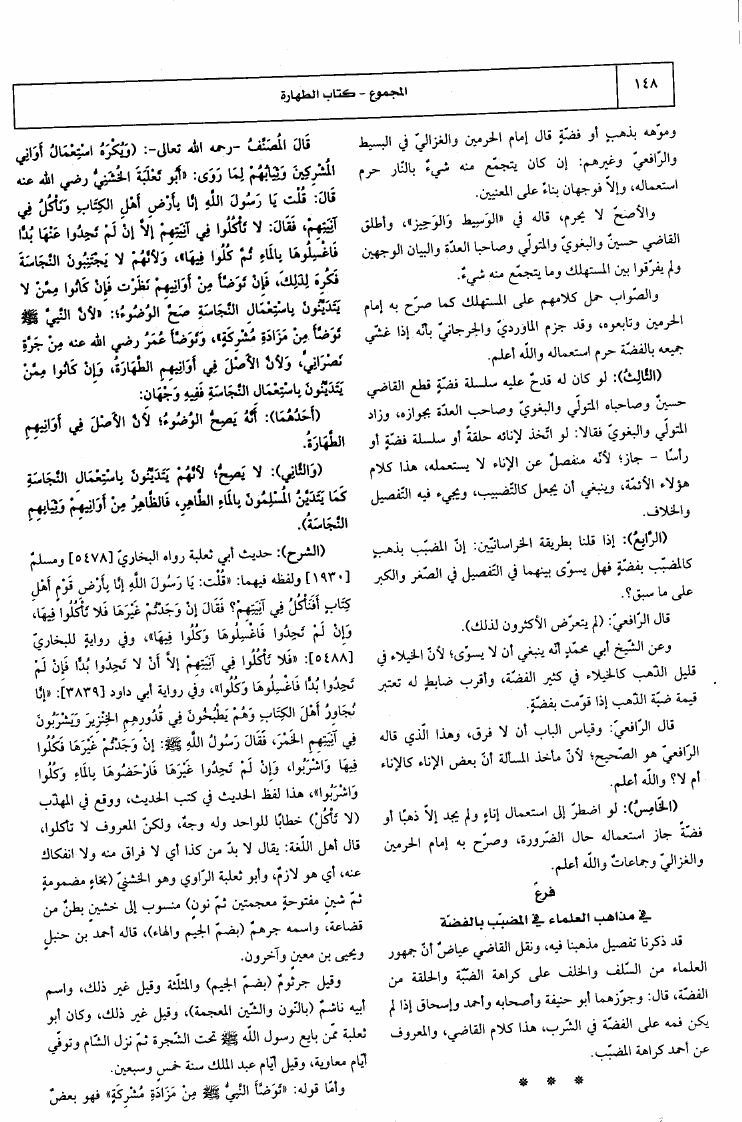 ١٤٨
المجموع - كتاب الطهارة
وموّهه بذهبٍ أو فضّةٍ قال إمام الحرمين والغزاليّ في البسيط
والرّافعيّ وغيرهم: إن كان يتجمّع منه شيءٌ بالنّار حرم
استعماله، وإلاّ فوجهان بناءً على المعنيين.
والأصحّ لا يحرم، قاله في «الوَسِيط وَالوَجِيز»، وأطلق
القاضي حسينٌ والبغويّ والمتولّي وصاحبا العدّة والبيان الوجهين
ولم يفرّقوا بين المستهلك وما يتجمّع منه شيءٌ.
والصّواب حمل كلامهم على المستهلك كما صرّح به إمام
الحرمين وتابعوه، وقد جزم الماورديّ والجرجانيّ بأنّه إذا غشّي
جميعه بالفضّة حرم استعماله والله أعلم.
(الثالِثُ): لو كان له قدحٌ عليه سلسلة فضّةٍ قطع القاضي
حسينٌ وصاحباه المتولّي والبغويّ وصاحب العدّة بجوازه، وزاد
المتولّي والبغويّ فقالا: لو اتّخذ لإنائه حلقةً أو سلسلة فضّةٍ أو
رأسًا - جاز؛ لأنّه منفصلٌ عن الإناء لا يستعمله، هذا كلام
هؤلاء الأئمّة، وينبغي أن يجعل كالتّضبيب، ويجيء فيه التّفصيل
والخلاف.
(الرّابِعُ): إذا قلنا بطريقة الخراسانيّين: إنّ المضبّب بذهبٍ
كالمضبّب بفضّةٍ فهل يسوّى بينهما في التّفصيل في الصّغر والكبر
على ما سبق؟.
قال الرّافعيّ: (لم يتعرّض الأكثرون لذلك).
وعن الشّيخ أبي محمّدٍ أنّه ينبغي أن لا يسوّى؛ لأنّ الخيلاء في
قليل الذّهب كالخيلاء في كثير الفضّة، وأقرب ضابطٍ له تعتبر
قيمة ضبّة الذّهب إذا قوّمت بفضّةٍ.
قال الرّافعيّ: وقياس الباب أن لا فرق، وهذا الّذي قاله
الرّافعيّ هو الصّحيح؛ لأنّ مأخذ المسألة أنّ بعض الإناء كالإناء
أم لا؟ والله أعلم.
(الخَامِسُ): لو اضطرّ إلى استعمال إناءٍ ولم يجد إلاّ ذهبًا أو
فضّةً جاز استعماله حال الضّرورة، وصرّح به إمام الحرمين
والغزاليّ وجماعاتٌ والله أعلم.
فرعٌ
في مذاهب العلماء في المضبّب بالفضّة
قد ذكرنا تفصيل مذهبنا فيه، ونقل القاضي عياضٌ أنّ جمهور
العلماء من السّلف والخلف على كراهة الضّبّة والحلقة من
الفضّة، قال: وجوّزهما أبو حنيفة وأصحابه وأحمد وإسحاق إذا لم
يكن فمه على الفضّة في الشّرب، هذا كلام القاضي، والمعروف
عن أحمد كراهة المضبّب.
* * *
قَالَ المُصَنِّفُ -رحمه الله تعالى-: (وَيُكْرَهُ اسْتِعْمَالُ أَوَانِي
المُشْرِكِينَ وَثِيَابُهُمْ لِمَا رَوَى: «أَبُو ثَعْلَبَةَ الخُشَنِيُّ رضي الله عنه
قَالَ: قُلْت يَا رَسُولَ اللَّهِ إنَّا بِأَرْضِ أَهْلِ الكِتَابِ وَنَأْكُلُ فِي
آنِيَتِهِمْ، فَقَالَ: لا تَأْكُلُوا فِي آنِيَتِهِمْ إلاَّ إنْ لَمْ تَجِدُوا عَنْهَا بُدًّا
فَاغْسِلُوهَا بِالمَاءِ ثُمَّ كُلُوا فِيهَا»، وَلأَنَّهُمْ لا يَجْتَنِبُونَ النَّجَاسَةَ
فَكُرِهَ لِذَلِكَ، فَإِنْ تَوَضَّأَ مِنْ أَوَانِيهِمْ نَظَرْت فَإِنْ كَانُوا مِمَّنْ لا
يَتَدَيَّنُونَ بِاسْتِعْمَالِ النَّجَاسَةِ صَحَّ الوُضُوءُ؛ «لأَنَّ النَّبِيَّ ﷺ
تَوَضَّأَ مِنْ مَزَادَةِ مُشْرِكَةٍ»، وَتَوَضَّأَ عُمَرُ رضي الله عنه مِنْ جَرَّةِ
نَصْرَانِيٍّ، وَلأَنَّ الأَصْلَ فِي أَوَانِيهِمِ الطَّهَارَةُ، وَإِنْ كَانُوا مِمَّنْ
يَتَدَيَّنُونَ بِاسْتِعْمَالِ النَّجَاسَةِ فَفِيهِ وَجْهَانِ:
(أَحَدُهُمَا): أَنَّهُ يَصِحُّ الوُضُوءُ؛ لأَنَّ الأَصْلَ فِي أَوَانِيهِمِ
الطَّهَارَةُ.
(وَالثَّانِي): لا يَصِحُّ؛ لأَنَّهُمْ يَتَدَيَّنُونَ بِاسْتِعْمَالِ النَّجَاسَةِ
كَمَا يَتَدَيَّنُ المُسْلِمُونَ بِالمَاءِ الطَّاهِرِ، فَالظَّاهِرُ مِنْ أَوَانِيهِمْ وَثِيَابِهِمِ
النَّجَاسَةُ).
(الشرح): حديث أبي ثعلبة رواه البخاريّ [٥٤٧٨] ومسلمٌ
[١٩٣٠] ولفظه فيهما: «قُلْت: يَا رَسُولَ اللَّهِ إنَّا بِأَرْضِ قَوْمٍ أَهْلِ
كِتَابٍ أَفَنَأْكُلُ فِي آنِيَتِهِمْ؟ فَقَالَ إنْ وَجَدْتُمْ غَيْرَهَا فَلا تَأْكُلُوا فِيهَا،
وَإِنْ لَمْ تَجِدُوا فَاغْسِلُوهَا وَكُلُوا فِيهَا»، وفي روايةٍ للبخاريّ
[٥٤٨٨]: «فَلا تَأْكُلُوا فِي آنِيَتِهِمْ إلاَّ أَنْ لا تَجِدُوا بُدًّا فَإِنْ لَمْ
تَجِدُوا بُدًّا فَاغْسِلُوهَا وَكُلُوا»، وفي رواية أبي داود [٣٨٣٩]: «إنَّا
نُجَاوِرُ أَهْلَ الكِتَابِ وَهُمْ يَطْبُخُونَ فِي قُدُورِهِمِ الخِنْزِيرَ وَيَشْرَبُونَ
فِي آنِيَتِهِمِ الخَمْرَ، فَقَالَ رَسُولُ اللَّهِ ﷺ: إنْ وَجَدْتُمْ غَيْرَهَا فَكُلُوا
فِيهَا وَاشْرَبُوا، وَإِنْ لَمْ تَجِدُوا غَيْرَهَا فَارْحَضُوهَا بِالمَاءِ وَكُلُوا
وَاشْرَبُوا»، هذا لفظ الحديث في كتب الحديث، ووقع في المهذّب
(لا تَأْكُلْ) خطابًا للواحد وله وجهٌ، ولكنّ المعروف لا تأكلوا،
قال أهل اللّغة: يقال لا بدّ من كذا أي لا فراق منه ولا انفكاك
عنه، أي هو لازمٌ، وأبو ثعلبة الرّاوي وهو الخشنيّ (بخاءٍ مضمومةٍ
ثمّ شينٍ مفتوحةٍ معجمتين ثمّ نونٍ) منسوب إلى خشينٍ بطنٌ من
قضاعة، واسمه جرهمٌ (بضمّ الجيم والهاء)، قاله أحمد بن حنبلٍ
ويحيى بن معينٍ وآخرون.
وقيل جرثومٌ (بضمّ الجيم) والمثلّثة وقيل غير ذلك، واسم
أبيه ناشمٌ (بالنّون والشّين المعجمة)، وقيل غير ذلك، وكان أبو
ثعلبة ممّن بايع رسول اللّه ﷺ تحت الشّجرة ثمّ نزل الشّام وتوفّي
أيّام معاوية، وقيل أيّام عبد الملك سنة خمسٍ وسبعين.
وأمّا قوله: «تَوَضَّأَ النَّبِيُّ ﷺ مِنْ مَزَادَةِ مُشْرِكَةٍ» فهو بعضٌ